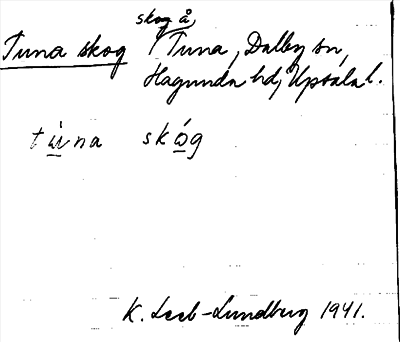 skog å,
Tuna skog / Tuna, Dalby sn,
Hagunda hd, Upsala l.
tùna skóg
K. Leeb-Lundberg 1941.